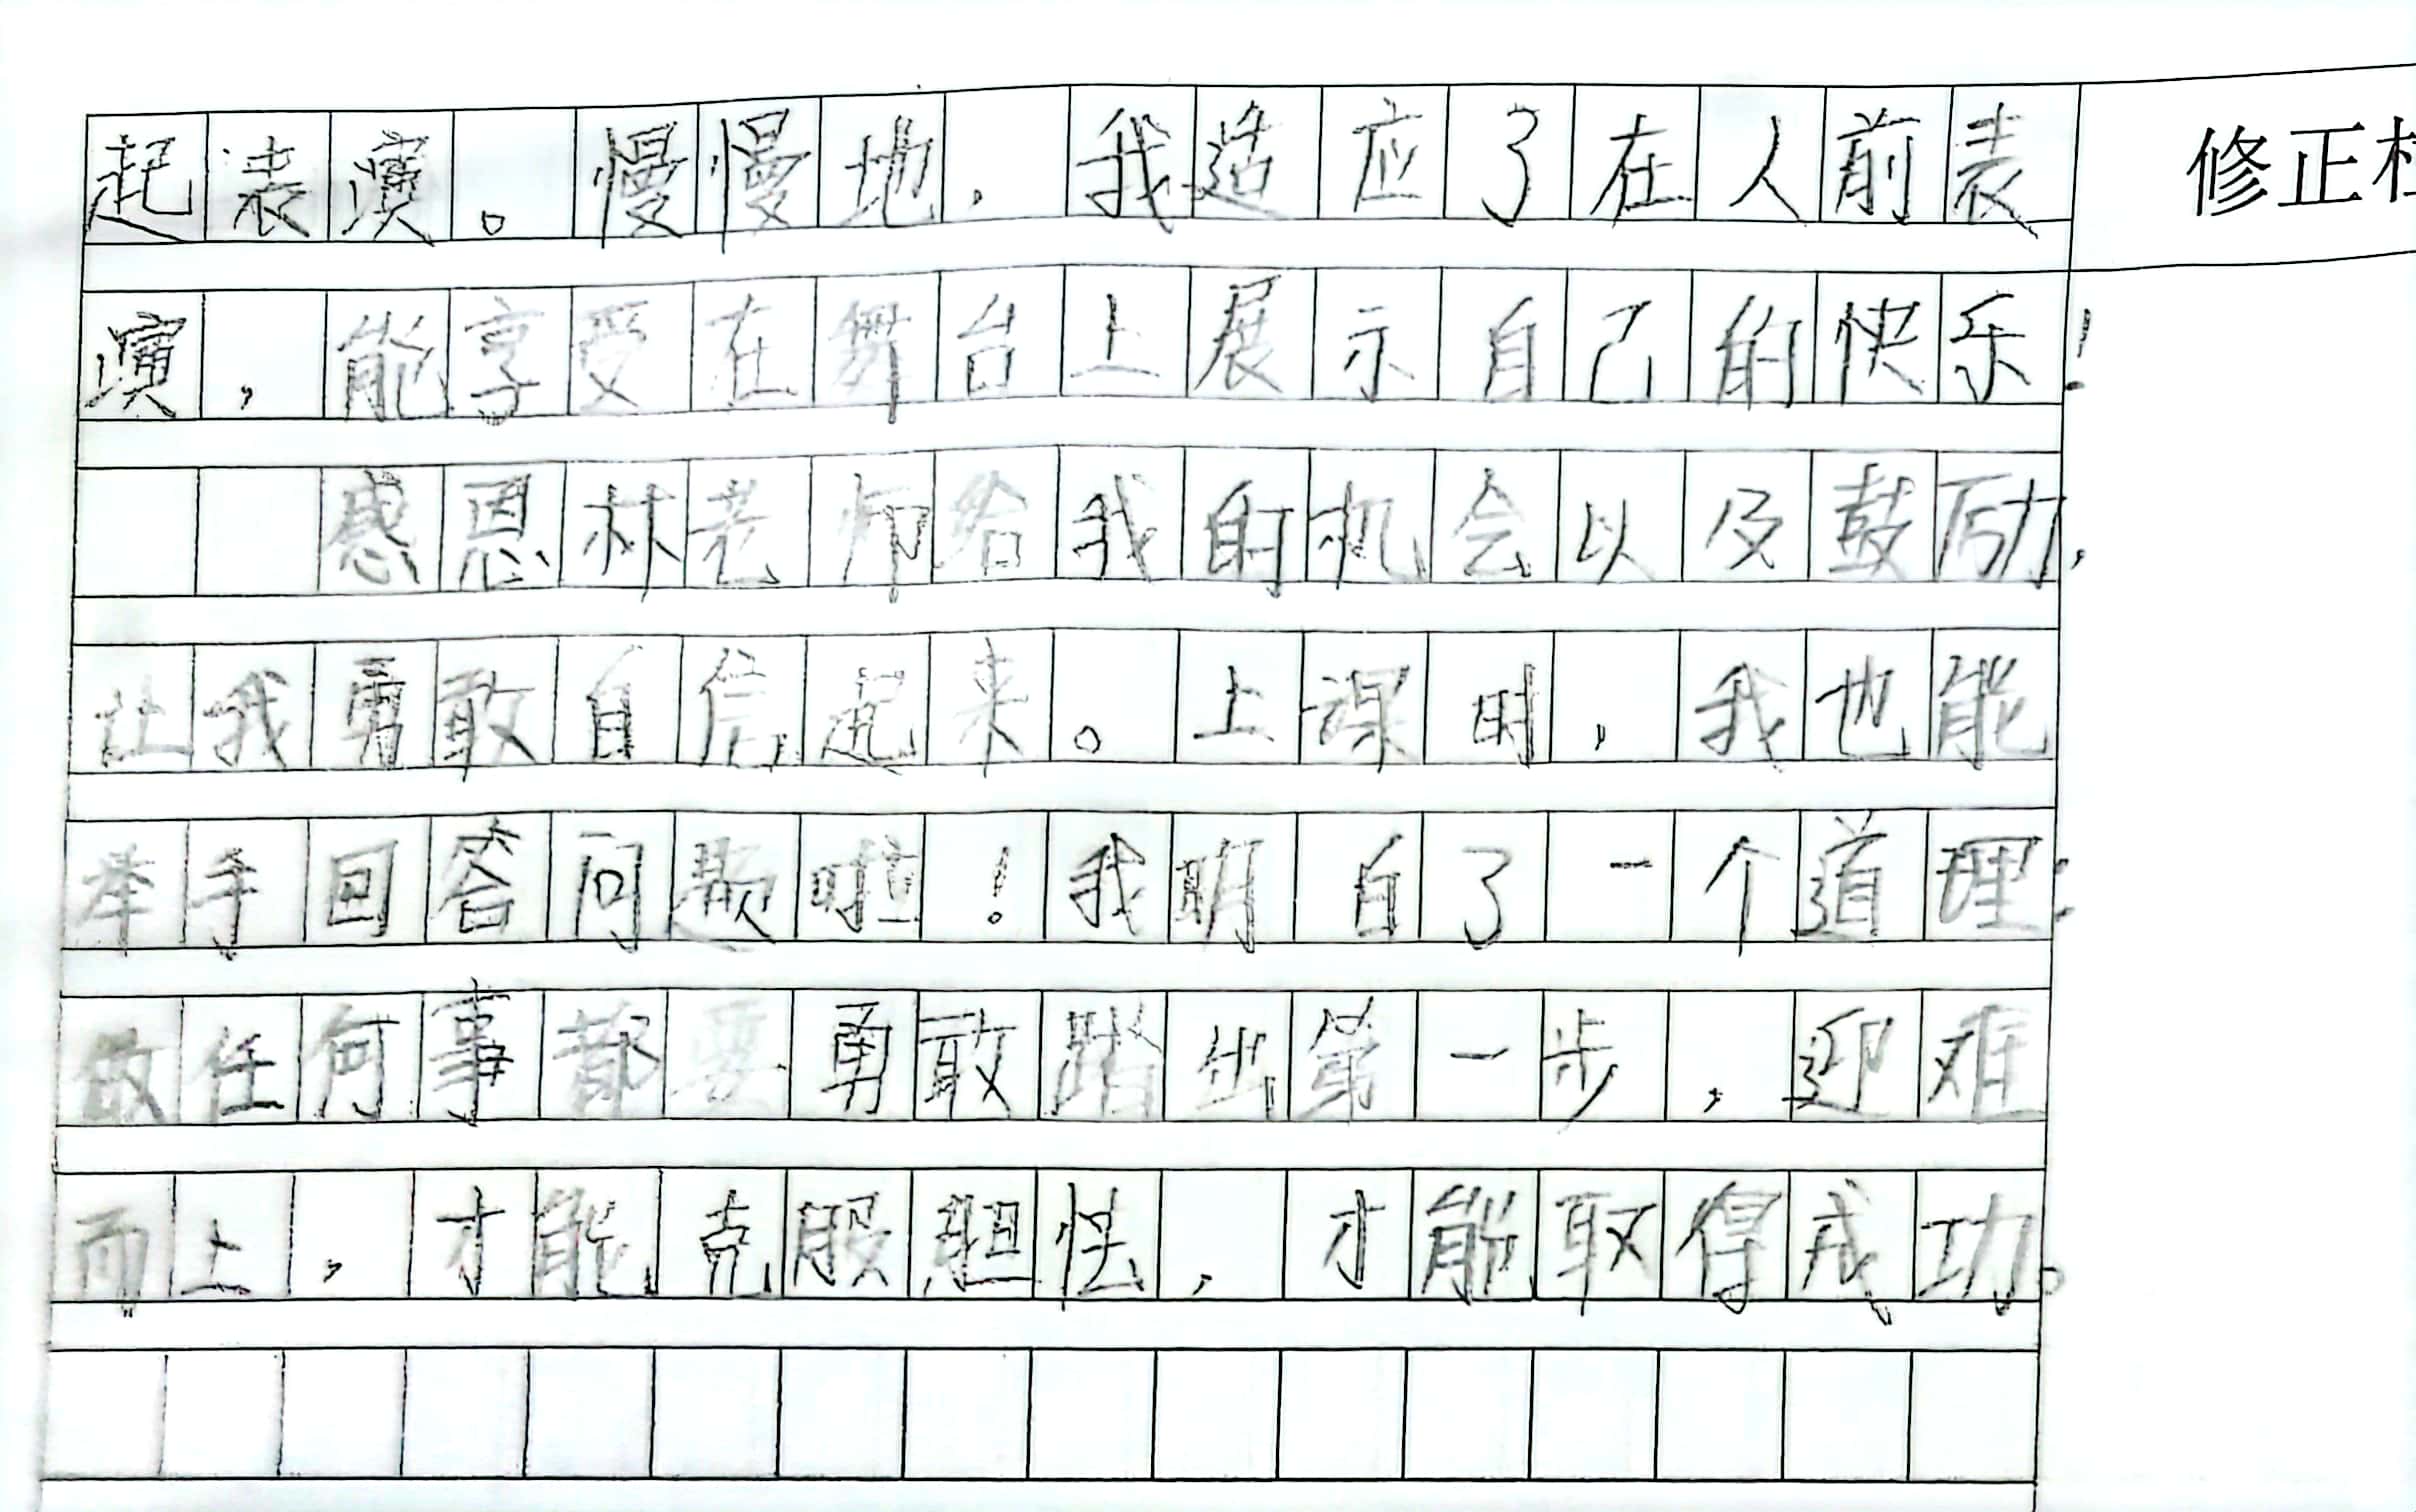 起表演。慢慢地，我造应了在人前表
修正栏
演，能享受在舞台上展示自己的快乐！
感恩林老师给我的机会以及鼓励，
让我勇敢自信起来。上课时，我也能
举手回答问题啦！我明白了一个道理：
做任何事都要勇敢踏出第一步，迎难
而上，才能克服胆怯，才能取得成功。